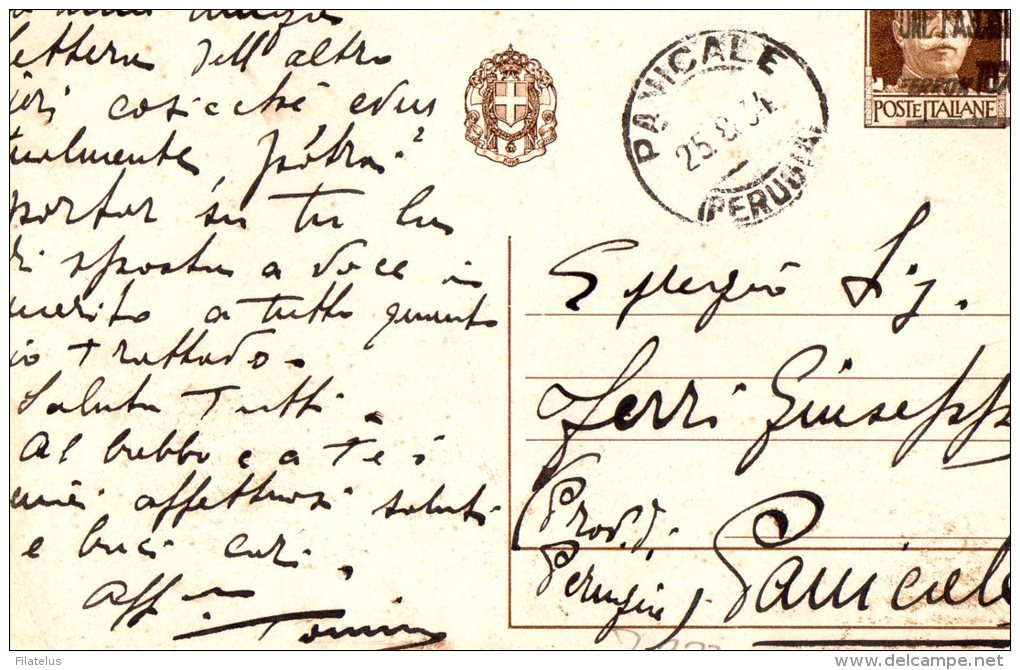 lettera dell'altro
ieri cosicché even
tualmente potrai
portar su tu la
ri sposta a voce in
merito a tutto quanto
io trattado.
Saluta Tutti.
Al babbo e a Te i
miei affettuosi saluti
e baci cari.
Aff.
Tonino
PANICALE
25.8.34
(PERUGIA)
POSTE ITALIANE
Egregio Sig.
Ferri Giuseppe
(Prov. di
Perugia)
Panicale
Filatelus